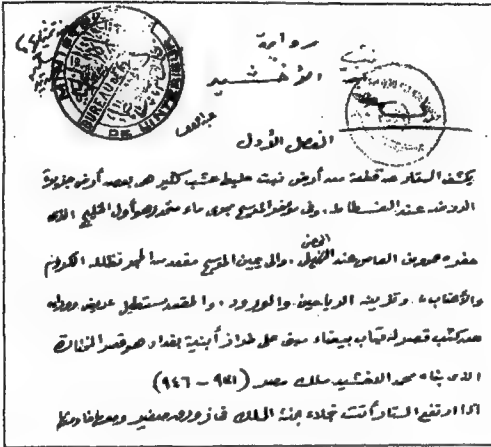 رواية
الأخشيد
الفصل الأول
يكشف الستار عن قطعة من أرض نبت عليها عشب كثير هى بعض أرض جزيرة
الروضة عند الفسطاط. وفى مؤخر المسرح مجرى ماء متحدر هو أول الخليج الذى
حفره عمروبن العاص عند . والى يمين المسرح مقعد من الحجر تظلله الكروم
والأعناب، وتزينه الرياحين والورود، والمقعد مستطيل عريض
عن كثب قصر له قباب بيضاء مبنى على طراز أبنية بغداد هو قصر المختار
الذى بناه محمد الاخشيد ملك مصر (٩٣١ - ٩٤٦)
اذا ارتفع الستار أتت تجاه الملك فى زورق صغير
MINISTÈRE DE L'INTÉRIEUR
BUREAU DE